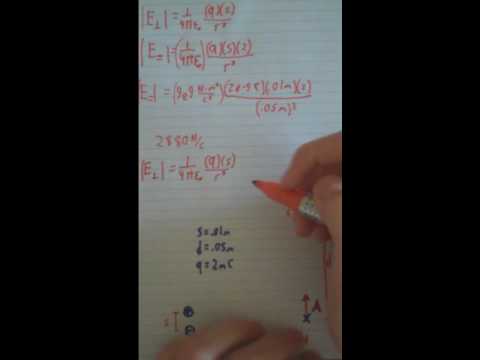 |E⊥| = 1/4πε₀ (q)(s)/r³
|E=| = (1/4πε₀) (q)(s)(2)/r³
|E=| = (9e9 N·m²/c²) (2e-9C)(.01m)(2)/(.05m)³
2880 N/C
|E⊥| = 1/4πε₀ (q)(s)/r³
s = .01m
d = .05m
q = 2nC
s
A